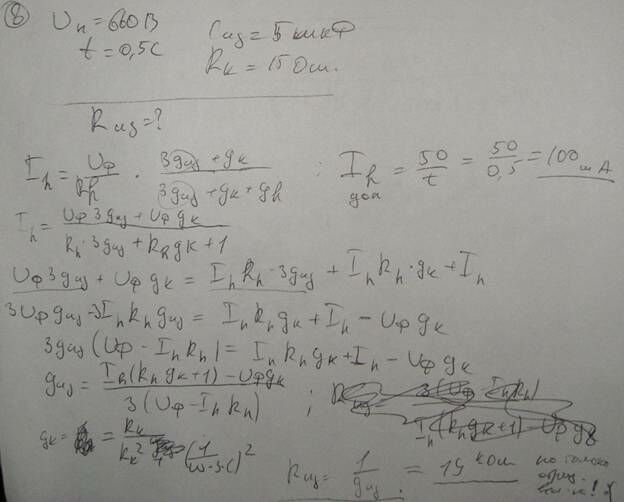 8 Uл = 660В Cиз = 5 мкФ
t = 0,5с Rк = 15 Ом.
Rиз = ?
Ih = Uф/Rh · (3gиз + gк)/(3gиз + gк + gh) ; Ih доп = 50/t = 50/0,5 = 100 мА
Ih = (Uф 3gиз + Uф gк)/(Rh · 3gиз + Rh gк + 1)
Uф 3gиз + Uф gк = Ih Rh · 3gиз + Ih Rh · gк + Ih
3Uф gиз - 3Ih Rh gиз = Ih Rh gк + Ih - Uф gк
3gиз (Uф - Ih Rh) = Ih Rh gк + Ih - Uф gк
gиз = (Ih (Rh gк + 1) - Uф gк)/(3 (Uф - Ih Rh)) ;
gк = = Rк/Rк² (1/ω·3·C)²
Rиз = 1/gиз = 19 кОм но только